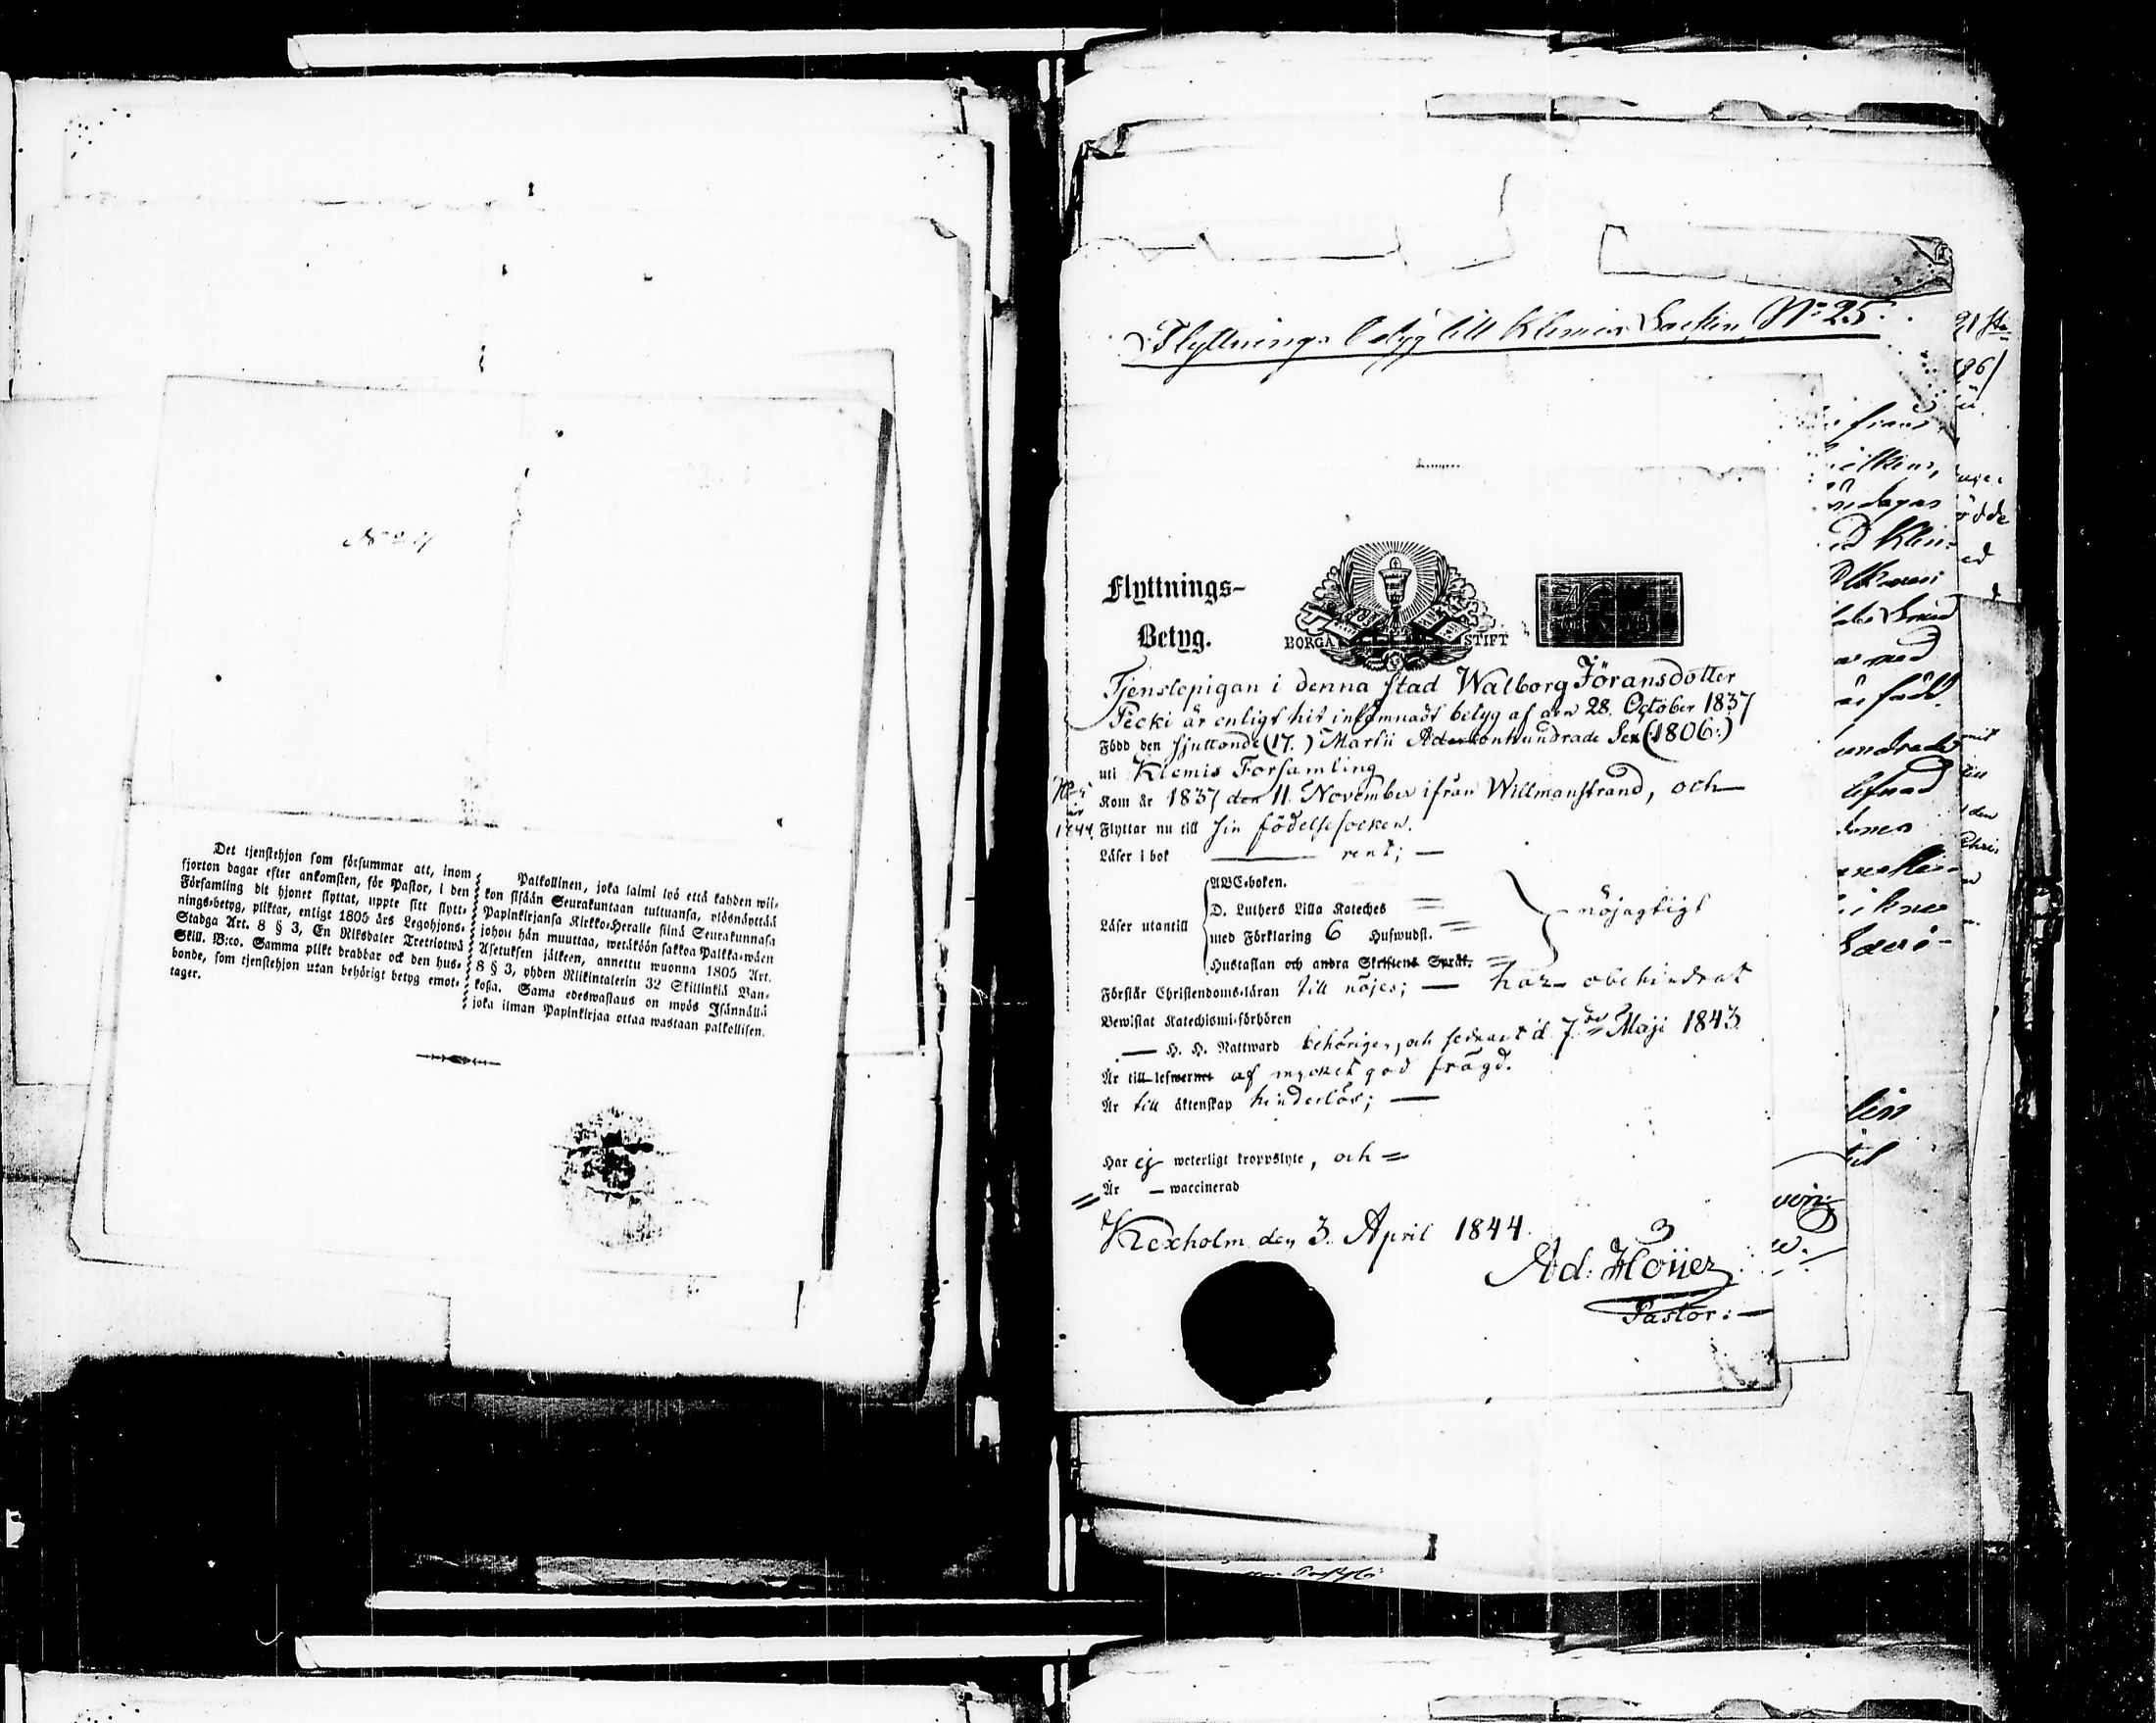 Det tjenstehjon som försummar att, inom
fjorton dagar efter ankomsten, för Pastor, i den
Församling dit hjonet flyttat, uppte sitt flytt-
nings-betyg, pliktar, enligt 1805 års Legohjons-
Stadga Art. 8 § 3, En Riksdaler Trettiotwå
Skill. B:co. Samma plikt drabbar ock den hus-
bonde, som tjenstehjon utan behörigt betyg emot-
tager.
Palkollinen, joka laimi lyö että kahden wii-
kon sisään Seurakuntaan tultuansa, ylösnäyttää
Papinkirjansa Kirkko-Heralle siinä Seurakunnasa
johon hän muuttaa, wetäköön sakkoa Palkka-wäen
Asetuksen jälkeen, annettu wuonna 1805 Art.
8 § 3, yhden Riikintalerin 32 Skillinkiä Ban-
koßa. Sama edeswastaus on myös Isännällä
joka ilman Papinkirjaa ottaa wastaan palkollisen.
Flyttnings betyg till Klemis Socken N:o 25.
Flyttnings-
Betyg.
BORGA STIFT
Tjenstepigan i denna stad Walborg Jöransdotter
Pecki är enligt hit inlämnadt betyg af den 28. October 1837
Född den sjuttonde (17.) Martii Adertonhundrade Sex (:1806:)
uti Klemis Forsamling
Kom år 1837 den 11. November ifrån Willmanstrand, och
1844 Flyttar nu till sin födelsesocken.
Läser i bok rent;
ABC-boken.
D. Luthers Lilla Kateches
Läser utantill med Förklaring 6 Hufwudst. nöjagtigt
Hustaflan och andra Skriftens Språk.
Förstår Christendoms-läran till nöjes; — har obehindrat
Bewistat Katechismi-förhören
— H. H. Nattward behörigen, och sednast d. 7. Maji 1843.
Är till lefwernet af mycket god frägd.
Är till äktenskap hinderlös; —
Har ej weterligt kroppslyte, och
Är — waccinerad
Kexholm den 3. April 1844.
Ad: Hoijer
Pastor: —